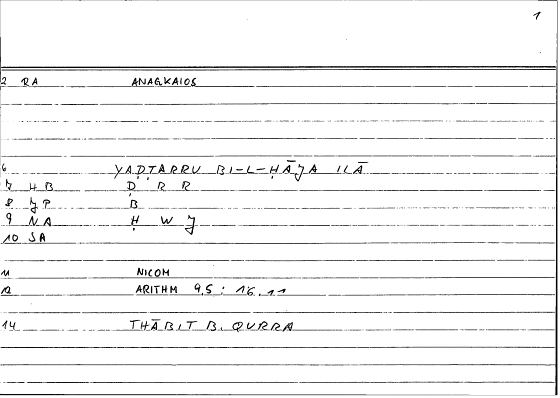 1
2 RA ANAGKAIOS
6 YAḌṬARRU BI-L-ḤĀJA ILĀ
7 HB Ḍ R R
8 JP B
9 NA Ḥ W J
10 SA
11 NICOM
12 ARITHM 9,5 : 16,11
14 THĀBIT B. QURRA